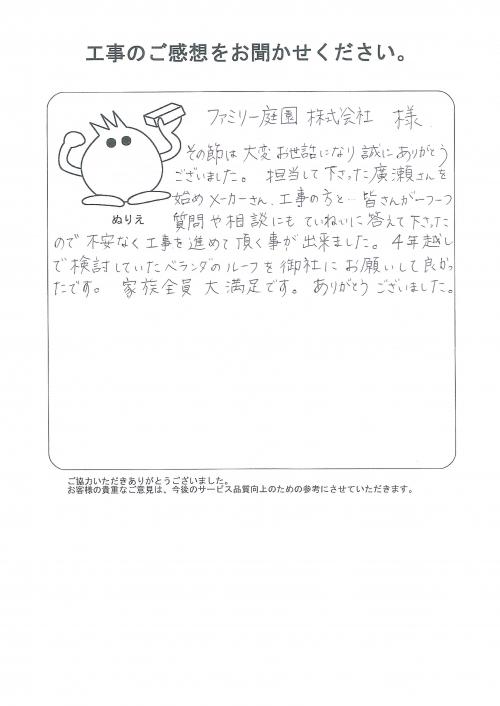 工事のご感想をお聞かせください。
ファミリー庭園 株式会社 様
その節は大変お世話になり誠にありがとう
ございました。 担当して下さった廣瀬さんを
始めメーカーさん、工事の方と… 皆さんが一つ一つ
質問や相談にも ていねいに答えて下さった
ぬりえ
ので不安なく工事を進めて頂く事が出来ました。4年越し
で検討していたベランダのルーフを御社にお願いして良かっ
たです。 家族全員 大満足です。 ありがとうございました。
ご協力いただきありがとうございました。
お客様の貴重なご意見は、今後のサービス品質向上のための参考にさせていただきます。